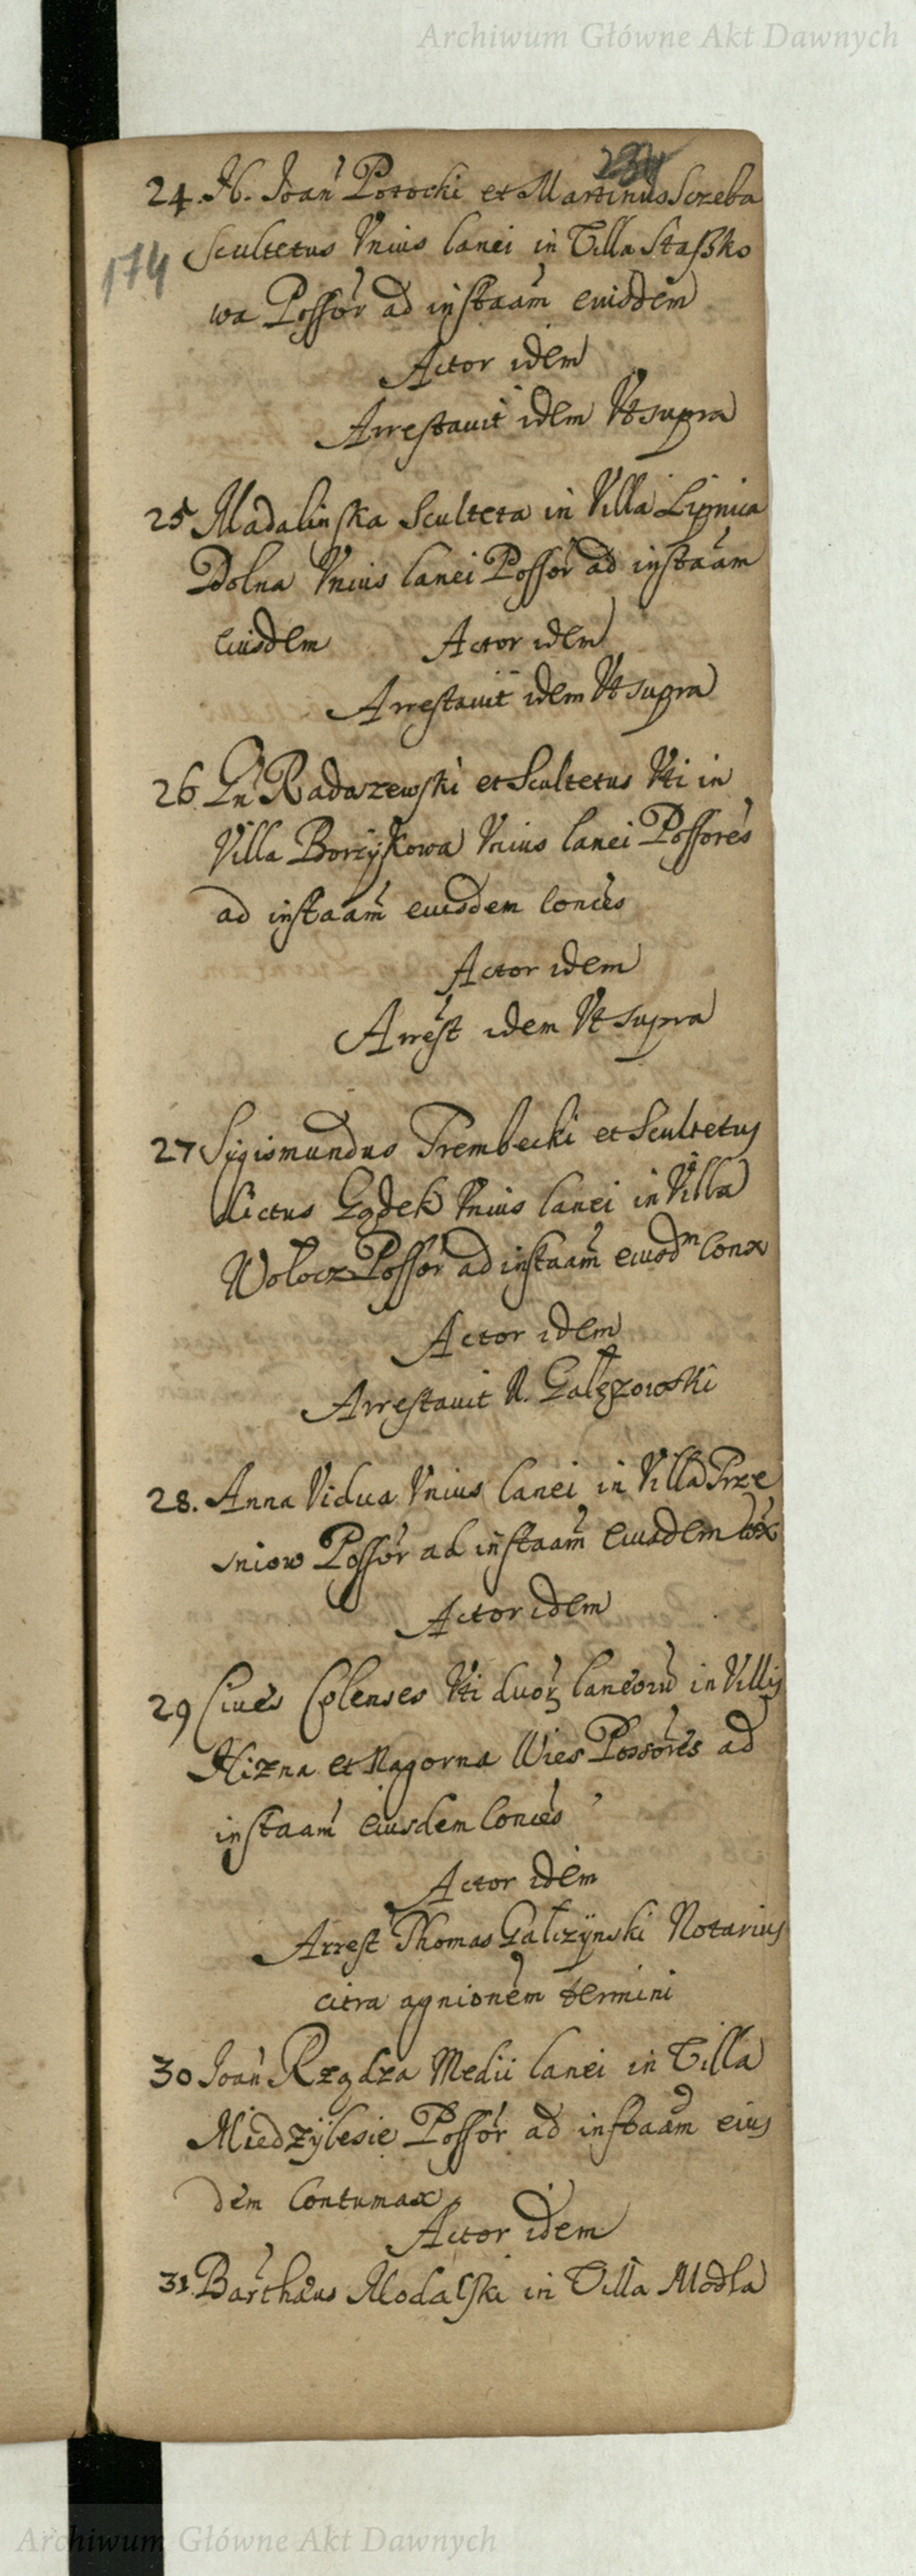 Archiwum Główne Akt Dawnych
234
24. N. Joan Potocki et Martinus Sczeba
174
Scultetus Vnius lanei in Villa Staszko
wa Possor ad instaam eiusdem
Actor idem
Arrestauit idem Vt supra
25 Madalinska Sculteta in Villa Lipnica
Dolna Vnius lanei Possor ad instaam
eiusdem Actor idem
Arrestauit idem Vt supra
26 Radoszewski et Scultetus Vti in
Villa Borzykowa Vnius lanei Possores
ad instaam eiusdem Conces
Actor idem
Arrest idem Vt supra
27 Sigismundus Trembecki et Scultetus
dictus Vnius lanei in Villa
Wolocz Possor ad instaam eiusdm Conx
Actor idem
Arrestauit N. Gałęzowski
28. Anna Vidua Vnius lanei in Villa Prze
sniow Possor ad instaam eiusdem
Actor idem
29 Ciues Colenses Vti duor laneoru in Villis
Nizna et Nagorna Wies Possores ad
instaam eiusdem Conces
Actor idem
Arrest Thomas Gałczynski Notarius
citra agnionem termini
30 Joan Rządza Medii lanei in Villa
Miedzylesie Possor ad instaam eius
dem Contumax
Actor idem
31 Barthaus Modalski in Villa Modła
Archiwum Główne Akt Dawnych